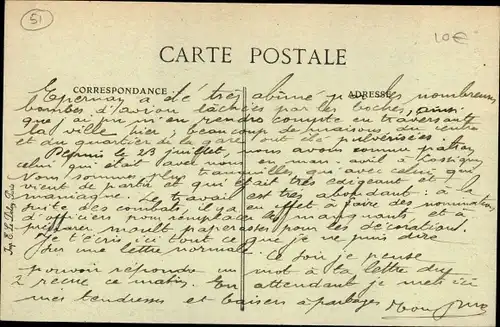 51
10€
CARTE POSTALE
CORRESPONDANCE
ADRESSE
Epernay a été très abîmé par les nombreuses
bombes d'avion lâchées par les boches, ainsi
que j'ai pu m'en rendre compte en traversant
la ville hier ; beaucoup de maisons du centre
et du quartier de la gare ont été pulvérisées.
Depuis le 23 juillet nous avons comme patron
celui qui était avec nous en mars avril à Lassigny
Nous sommes plus tranquilles qu'avec celui qui
vient de partir et qui était très exigeant et
maniaque. Le travail est très abondant à la
suite des combats, il y a en effet à faire des nominations
d'officiers pour remplacer les manquants, et à
préparer moult paperasses pour les décorations.
Je t'écris ici tout ce que je ne puis dire
sur une lettre normale. Ce soir je pense
pouvoir répondre un mot à la lettre du
2 reçue ce matin. En attendant je mets ici
mes tendresses et baisers à partager. Ton